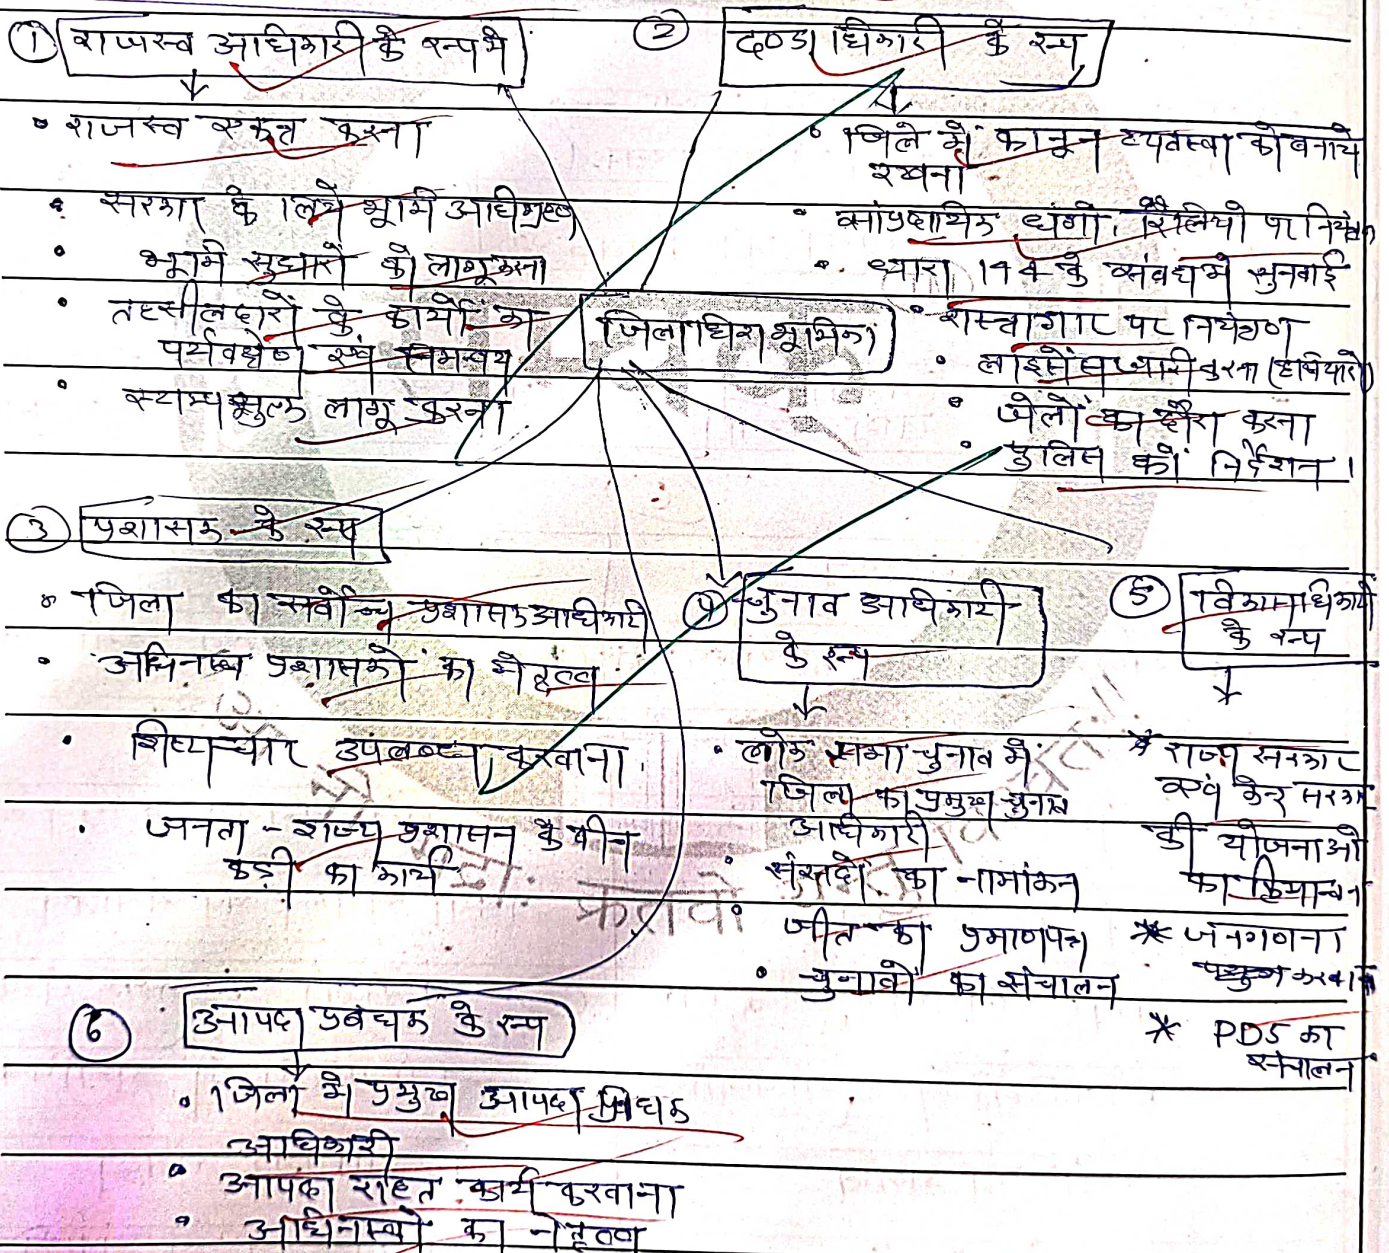 ① राजस्व अधिकारी के रूप मे
• राजस्व एकत्र करना
• सरकार के लिये भूमि अधिग्रहण
• भूमि सुधारों को लागू करना
• तहसीलदारों के कार्यो का
पर्यवेक्षण एवं समन्वय
• स्टाम्प शुल्क लागू करना
② दण्डाधिकारी के रूप
• जिले में कानून व्यवस्था को बनाये
रखना
• सांप्रदायिक दंगो, रैलियो पर नियंत्रण
• धारा 144 के संबंध मे सुनवाई
• शस्त्रागार पर नियंत्रण
• लाइसेंस जारी करना (हथियारो)
• जेलों का दौरा करना
• पुलिस को निर्देशन।
जिलाधिश भूमिका
③ प्रशासक के रूप
• जिला का सर्वोच्च प्रशासक अधिकारी
• अधिनस्थ प्रशासको का नेतृत्व
• शिष्टाचार उपलब्ध करवाना
• जनता - राज्य प्रशासन के बीच
कड़ी का कार्य
④ चुनाव अधिकारी
के रूप
• लोक सभा चुनाव में
जिला का प्रमुख चुनाव
अधिकारी
• संसदों का नामांकन
• जीत का प्रमाणपत्र
• चुनावों का संचालन
⑤ विकासाधिकारी
के रूप
* राज्य सरकार
एवं केन्द्र सरकार
की योजनाओ
का क्रियान्वन
* जनगणना
करवाना
* PDS का
संचालन
⑥ आपदा प्रबंधक के रूप
• जिला मे प्रमुख आपदा प्रबंधक
अधिकारी
• आपदा राहत कार्य करवाना
• अधिनस्थो का नेतृत्व